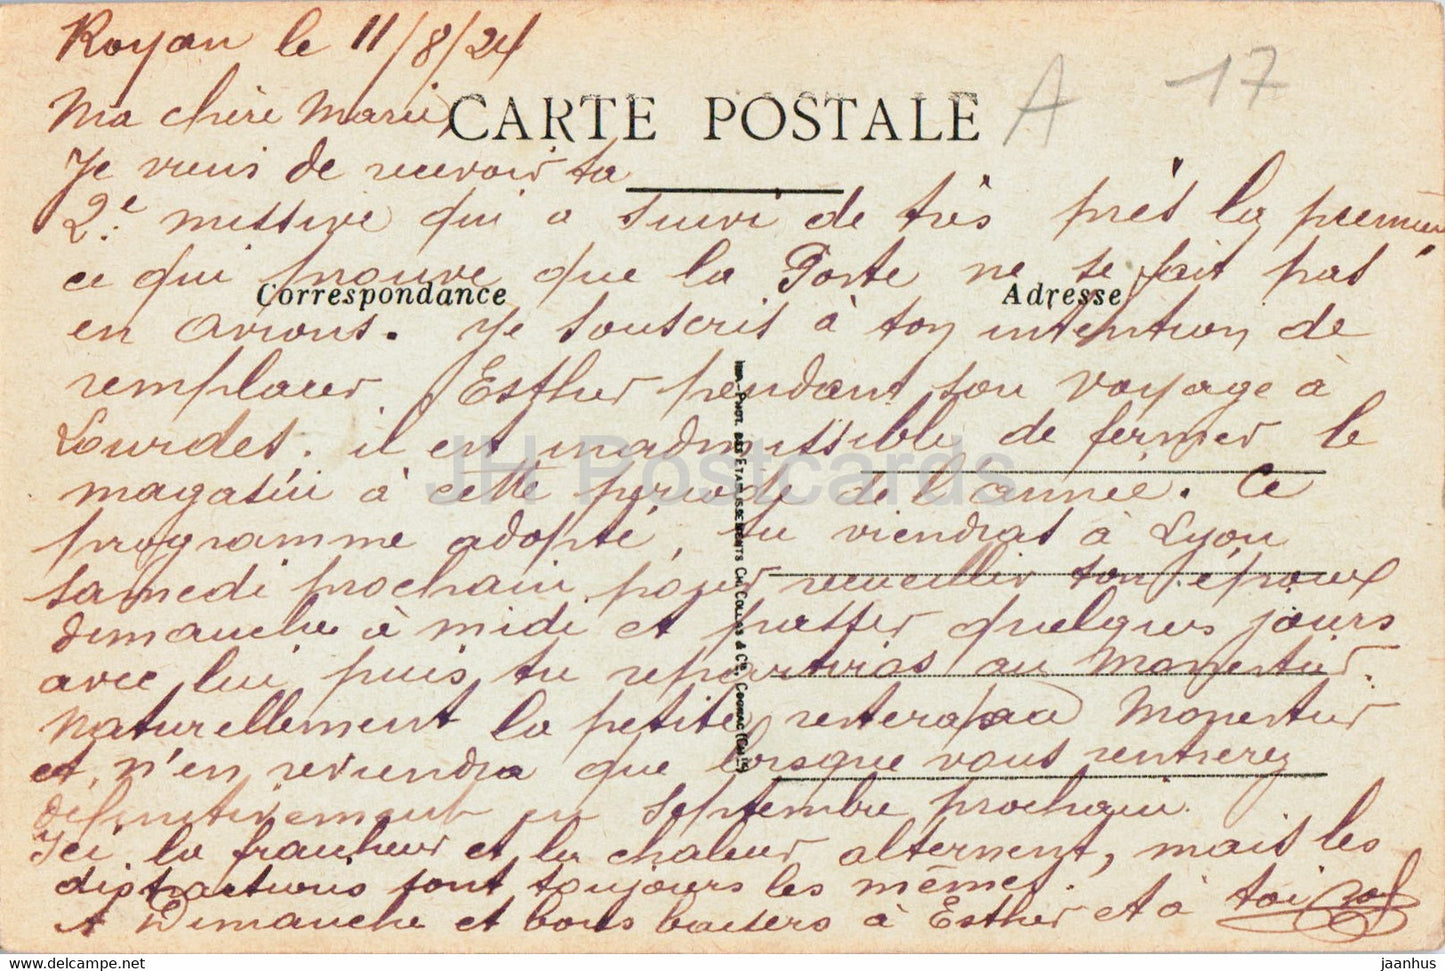 Royan le 11/8/24
Ma chère Marie, CARTE POSTALE A 17
Je viens de recevoir ta
2e missive qui a suivi de très près la première
ce qui prouve que la Poste ne se fait pas
Correspondance Adresse
en avions. Je souscris à ton intention de
remplacer Esther pendant son voyage à
Lourdes. il est inadmissible de fermer le
magasin à cette période de l'année. Ce
programme adopté, tu viendras à Lyon
samedi prochain pour recueillir ton époux
dimanche à midi et passer quelques jours
avec lui puis tu repartiras au Monestier.
Naturellement la petite restera au Monestier
et n'en reviendra que lorsque vous rentrerez
définitivement en Septembre prochain.
Ici la fraicheur et la chaleur alternent, mais les
distractions sont toujours les mêmes.
A Dimanche et bons baisers à Esther et à toi
IMP. PHOT. DES ETABLISSEMENTS CH. COLLAS & CIE, COGNAC
JH Postcards
www.hippostcard.com
jaanhus